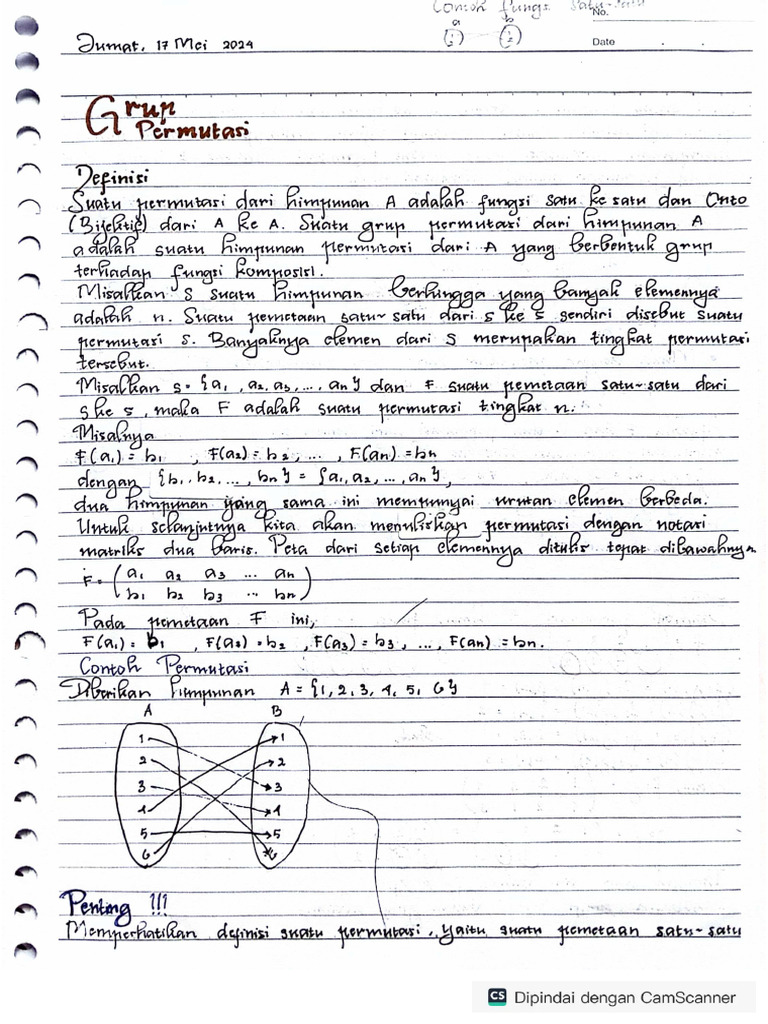 Contoh fungsi satu-satu
No.
a b
Jumat, 17 Mei 2024
Date
Grup
Permutasi
Definisi
Suatu permutasi dari himpunan A adalah fungsi satu ke satu dan Onto
(Bijektif) dari A ke A. Suatu grup permutasi dari himpunan A
adalah suatu himpunan permutasi dari A yang berbentuk grup
terhadap fungsi komposisi.
Misalkan S suatu himpunan berhingga yang banyak elemennya
adalah n. Suatu pemetaan satu-satu dari s ke s sendiri disebut suatu
permutasi s. Banyaknya elemen dari S merupakan tingkat permutasi
tersebut.
Misalkan s = {a1, a2, a3, ..., an} dan F suatu pemetaan satu-satu dari
s ke s, maka F adalah suatu permutasi tingkat n.
Misalnya
F(a1) = b1 , F(a2) = b2, ... , F(an) = bn
dengan {b1, b2, ..., bn} = {a1, a2, ..., an},
dua himpunan yang sama ini mempunyai urutan elemen berbeda.
Untuk selanjutnya kita akan menuliskan permutasi dengan notasi
matriks dua baris. Peta dari setiap elemennya ditulis tepat dibawahnya.
F = (a1 a2 a3 ... an)
b1 b2 b3 ... bn
Pada pemetaan F ini,
F(a1) = b1 , F(a2) = b2 , F(a3) = b3, ..., F(an) = bn.
Contoh Permutasi
Diberikan himpunan A = {1, 2, 3, 4, 5, 6}
A B
1 1
2 2
3 3
4 4
5 5
6 6
Penting !!!
Memperhatikan definisi suatu permutasi, yaitu suatu pemetaan satu-satu
CS Dipindai dengan CamScanner